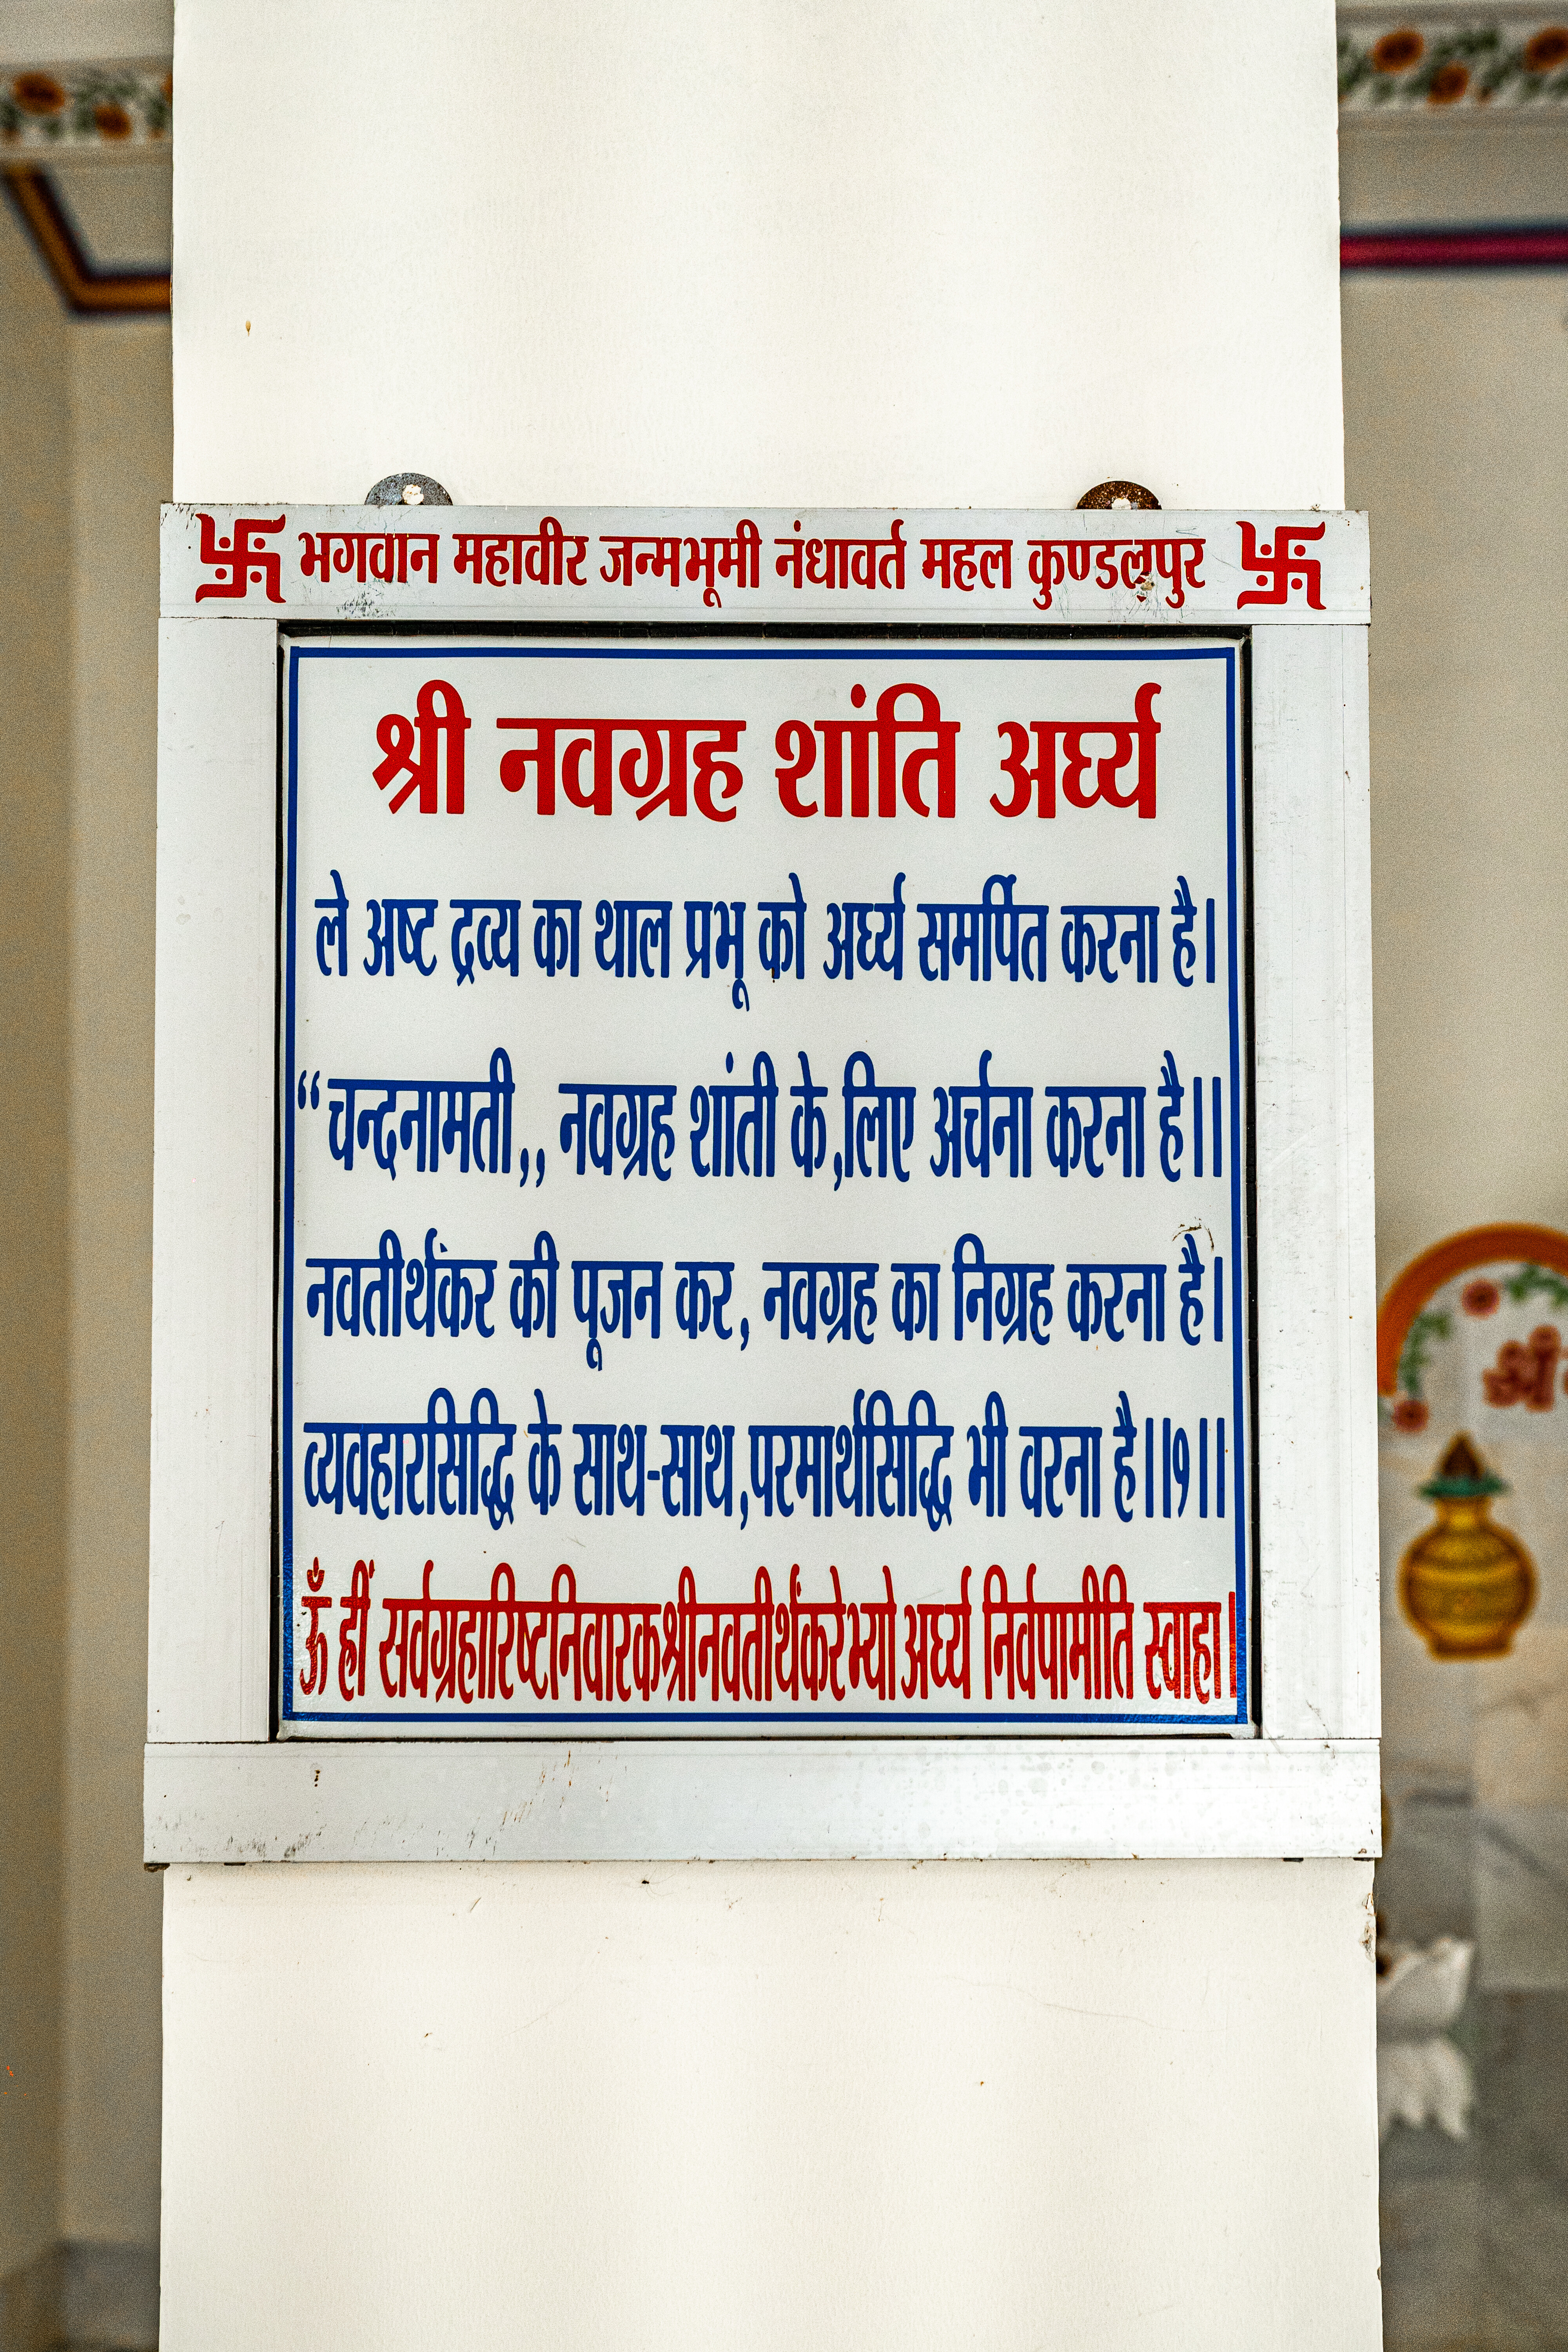 भगवान महावीर जन्मभूमी नंधावर्त महल कुण्डलपुर
श्री नवग्रह शांति अर्घ्य
ले अष्ट द्रव्य का थाल प्रभू को अर्घ्य समर्पित करना है।
“चन्दनामती,, नवग्रह शांती के,लिए अर्चना करना है।।
नवतीर्थंकर की पूजन कर, नवग्रह का निग्रह करना है।
व्यवहारसिद्धि के साथ-साथ,परमार्थसिद्धि भी वरना है।।१।।
ऊँ ह्रीं सर्वग्रहारिष्टनिवारकश्रीनवतीर्थंकरेभ्यो अर्घ्य निर्वपामीति स्वाहा।